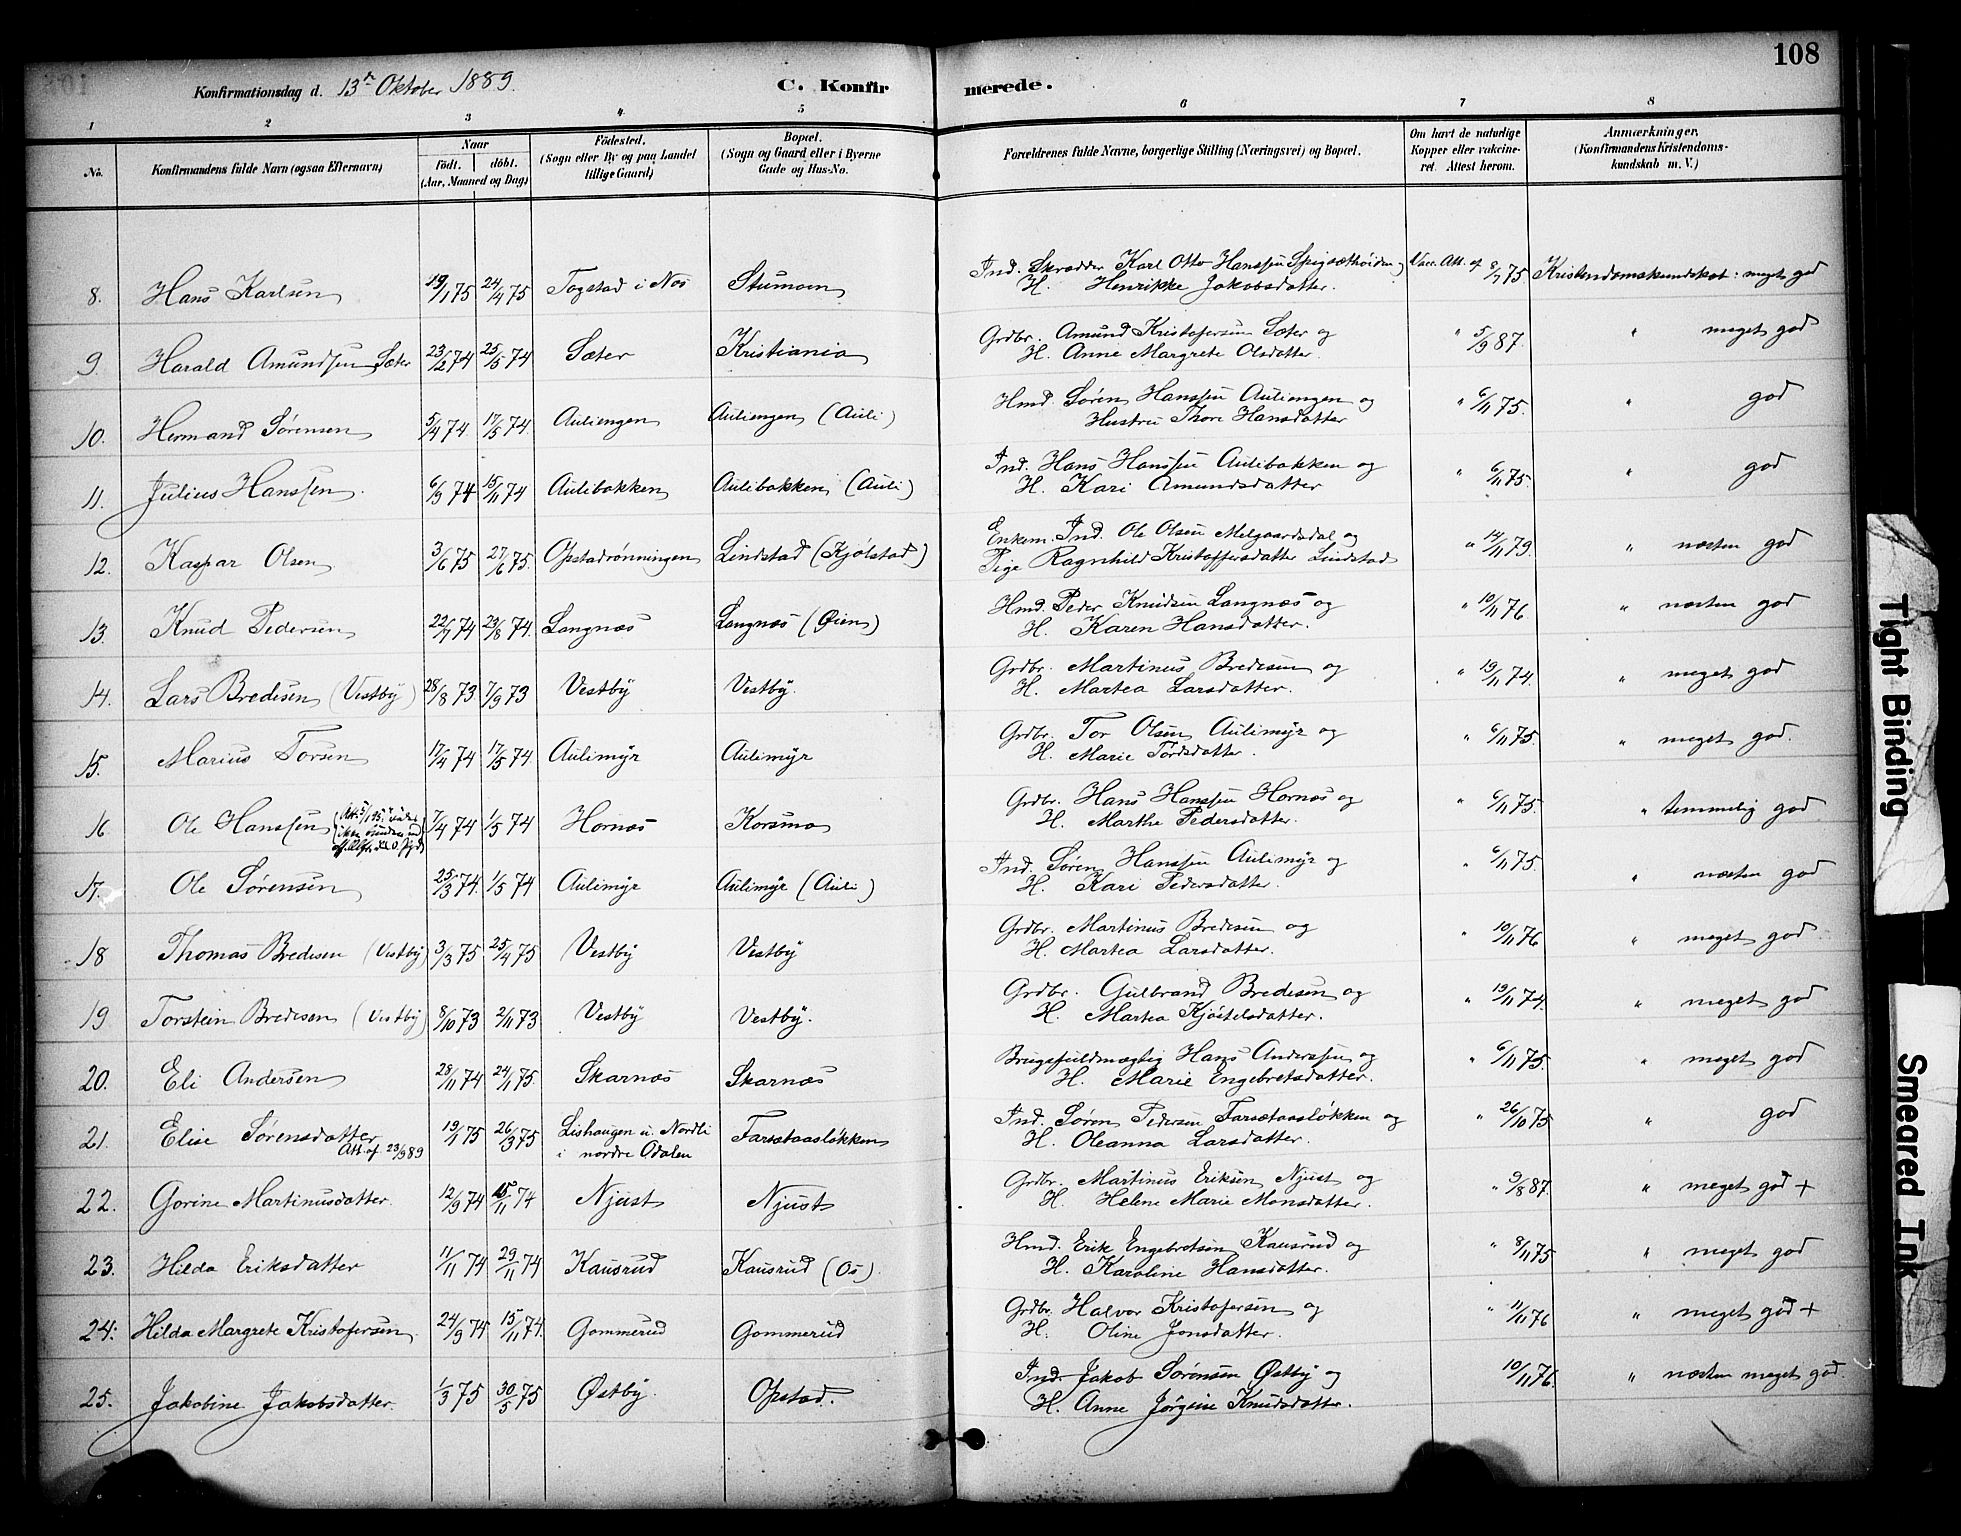 108
Konfirmationsdag d. 13de Oktober 1889.
C. Konfirmerede.
1 2 3 4 5 6 7 8
No. Konfirmandens fulde Navn (ogsaa Efternavn) Naar födt. döbt. (Aar, Maaned og Dag) Födested. (Sogn eller By og paa Landet tillige Gaard) Bopæl. (Sogn og Gaard eller i Byerne Gade og Hus-No. Forældrenes fulde Navne, borgerlige Stilling (Næringsvei) og Bopæl. Om havt de naturlige Kopper eller vaccineret. Attest herom. Anmærkninger. (Konfirmandens Kristendomskundskab m. V.)
8. Hans Karlsen 19/1 75 24/4 75 Togstad i Nes Stumoen Ind. Skrædder Karl Otto Hanssen
H. Henrikke Jakobsdatter. Vacc. Att. af 8/7 75 Kristendomskundskab: meget god
9. Harald Amundsen Sæter 23/2 74 25/5 74 Sæter Kristiania Grdbr. Amund Kristofersen Sæter og
H. Anne Margrete Olsdatter. " 5/9 87. " meget god
10. Hermand Sørensen 5/4 74. 17/5 74. Auliengen Auliengen (Auli) Hmd. Søren Hanssen Auliengen og
Hustru Thore Hansdatter " 6/11 75. " god
11. Julius Hanssen. 6/9 74 15/11 74 Aulibakken Aulibakken (Auli) Ind. Hans Hanssen Aulibakken og
H. Kari Amundsdatter " 6/11 75. " god
12. Kaspar Olsen 3/6 75 27/6 75. Opstadrønningen Lindstad (Kjølstad) Enkem. Ind. Ole Olsen Melgaardsdal og
Pige Ragnhild Kristoffersdatter Lindstad " 14/11 79. " næsten god
13. Knud Pedersen 22/7 74 23/8 74. Langnæs Langnæs (Øien) Hmd. Peder Knudsen Langnæs og
H. Karen Hansdatter. " 10/11 76. " næsten god
14. Lars Bredesen (Vestby) 28/8 73 7/9 73 Vestby Vestby. Grdbr. Martinus Bredesen og
H. Martea Larsdatter. " 19/11 74. " meget god
15. Marius Torsen 17/4 74 17/5 74. Aulimyr Aulimyr Grdbr. Tor Olsen Aulimyr og
H. Marie Tordsdatter. " 6/11 75. " meget god.
16 Ole Hanssen 7/4 74 1/5 74 Hornæs Korsmo Grdbr. Hans Hanssen Hornæs og
H. Marthe Pedersdatter. " 6/11 75. " temmelig god
17. Ole Sørensen 25/3 74. 1/5 74 Aulimyr Aulimyr (Auli) Ind. Søren Hanssen Aulimyr og
H. Kari Pedersdatter. " 6/11 75 " næsten god
18 Thomas Bredesen (Vestby) 3/3 75. 25/4 75. Vestby Vestby Grdbr. Martinus Bredesen og
H. Martea Larsdatter. " 10/11 76 " meget god.
19 Torstein Bredesen (Vestby) 8/10 73 2/11 73 Vestby Vestby. Grdbr. Gulbrand Bredesen og
H. Martea Kjøstelsdatter. " 19/11 74. " meget god
20. Eli Andersen 28/11 74 24/1 75. Skarnæs Skarnæs Brugsfuldmægtig Hans Anderssen og
H. Marie Engebretsdatter. " 6/11 75. " meget god
21. Elise Sørensdatter
Att. af 23/9 89 19/1 75 26/3 75 Lishaugen u. Nordli
i nordre Odalen Farsætaasløkken Ind. Søren Pedersen Farsætaasløkken og
H. Oleanna Larsdatter. " 26/10 75 " god
22. Gorine Martinusdatter 12/9 74 15/11 74 Njust Njust Grdbr. Martinus Eriksen Njust og
H. Helene Marie Monsdatter. " 9/8 87. " meget god +
23. Hilda Eriksdatter 11/11 74 29/11 74 Kausrud Kausrud (Os). Hmd. Erik Engebretsen Kausrud og
H. Karoline Hansdatter. " 8/11 75 " meget god
24. Hilda Margrete Kristofersen 24/9 74 15/11 74. Gommerud Gommerud Grdbr. Halvor Kristofersen og
H. Oline Jonsdatter. " 11/11 76 " meget god +
25. Jakobine Jakobsdatter. 1/3 75 30/5 75 Østby. Opstad. Ind. Jakob Sørensen Østby og
H. Anne Jørgine Knudsdatter. 10/11 76. " næsten meget god.
Tight Binding
Smeared Ink